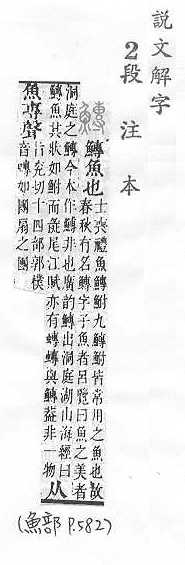 說文解字
2段注本
鱄 鱄魚也
士喪禮魚鱄鮒九鱄鮒皆常用之魚也故
春秋有名鱄字子魚者呂覽曰魚之美者
洞庭之鱄今本作鱄非也廣韵鱄出洞庭湖山海經曰
鱄魚其狀如鮒而彘尾江賦亦有鱄鱄與鱄葢非一物
从
魚專聲
旨兖切十四部郭樸
音如團扇之團
(魚部 P.582)